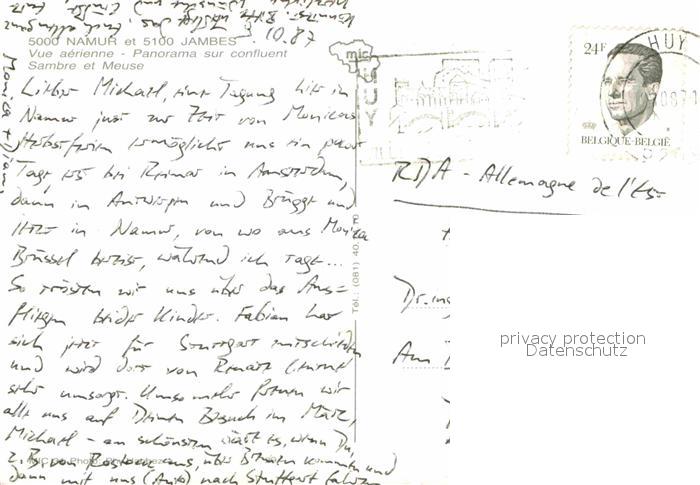 9.10.87
5000 NAMUR et 5100 JAMBES
Vue aérienne - Panorama sur confluent
Sambre et Meuse
Lieber Michael, eine Tagung hier in
Namur just zur Zeit von Monicas
Herbstferien ermöglicht uns ein paar
Tage bei Reimar in Amsterdam,
dann in Antwerpen und Brügge und
jetzt in Namur, von wo aus Monica
Brüssel bereist, während ich tage...
So trösten wir uns über das Aus=
fliegen beider Kinder. Fabian hat
sich jetzt für Stuttgart entschieden
und wird dort von Renate
sehr umsorgt. Umso mehr freuen wir
alle uns auf Deinen Besuch im März,
Michael - am schönsten wäre es, wenn Du,
z.B. von Rostock aus, über Bremen kommen und
dann mit uns (Auto) nach Stuttgart fahren
Monica +
Tél.: (081) 40.
mic
HUY
24F
BELGIQUE-BELGIË
HUY
RDA - Allemagne de l'Es-
Dr.
Am
privacy protection
Datenschutz